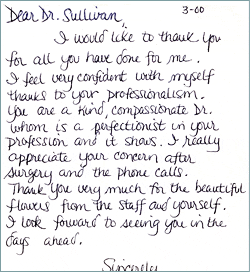 Dear Dr. Sullivan, 3-00
I would like to thank you
for all you have done for me.
I feel very confident with myself
thanks to your professionalism.
You are a kind, compassionate Dr.
whom is a perfectionist in your
profession and it shows. I really
appreciate your concern after
surgery and the phone calls.
Thank you very much for the beautiful
flowers from the staff and yourself.
I look forward to seeing you in the
days ahead.
Sincerely